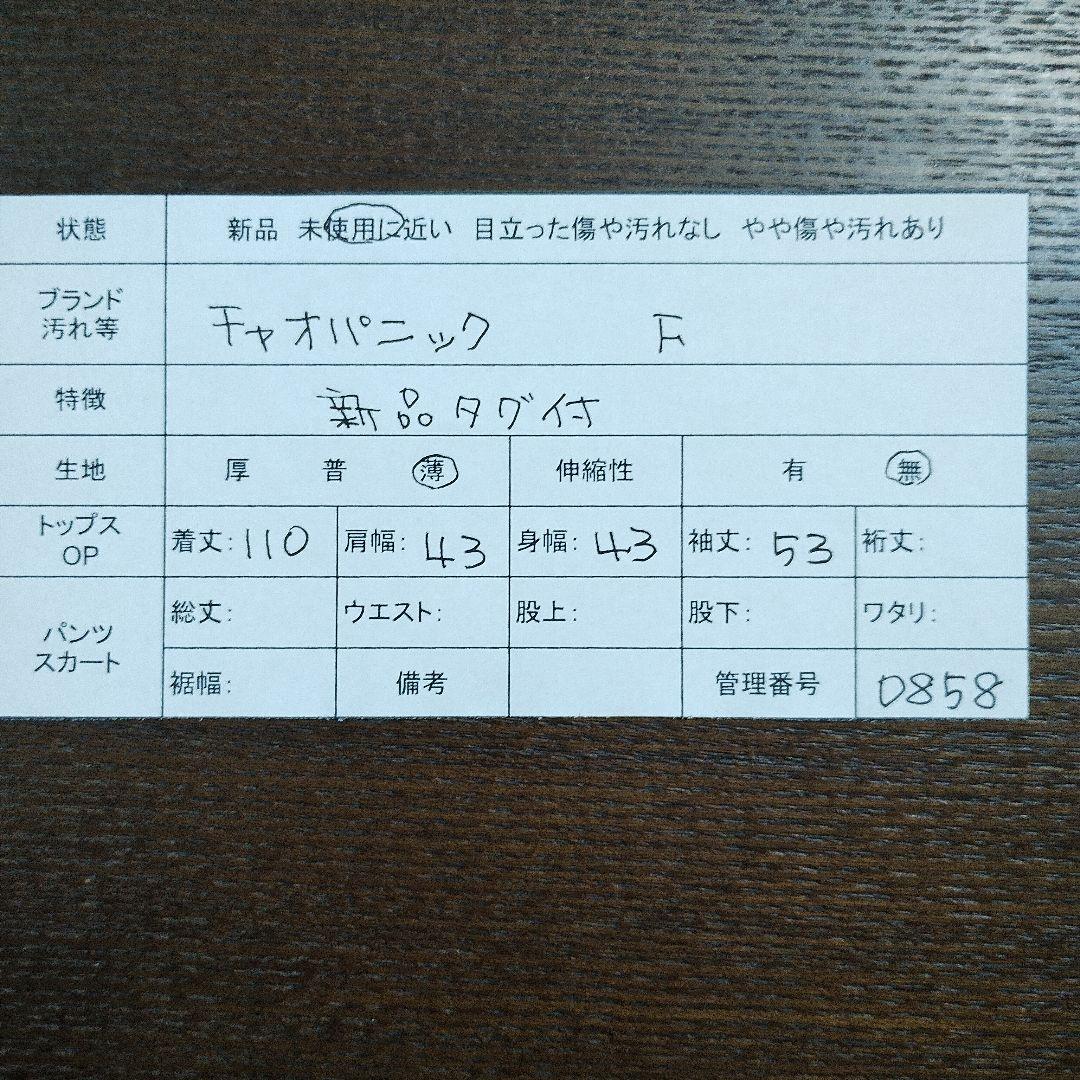 状態 新品 未使用に近い 目立った傷や汚れなし やや傷や汚れあり
ブランド
汚れ等
チャオパニック F
特徴 新品タグ付
生地 厚 普 薄 伸縮性 有 無
トップス
OP
着丈:110 肩幅:43 身幅:43 袖丈:53 裄丈:
パンツ
スカート
総丈: ウエスト: 股上: 股下: ワタリ:
裾幅: 備考 管理番号 0858